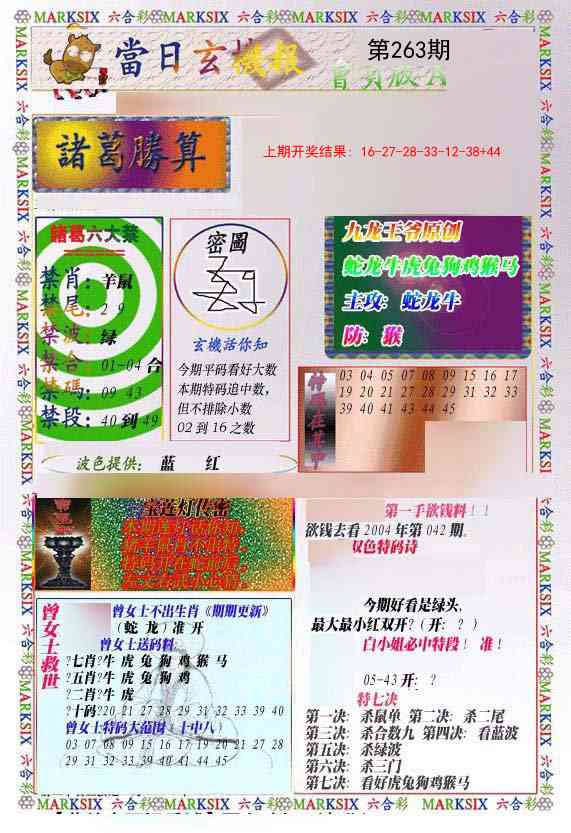 MARKSIX 六合彩 MARKSIX 六合彩 MARKSIX 六合彩 MARKSIX 六合彩 MARKSIX
當日玄機報
第263期
諸葛勝算
上期开奖结果：16-27-28-33-12-38+44
諸葛六大禁
禁肖：羊鼠
禁尾：2 9
禁波：绿
禁合：01-04 合
禁碼：09 43
禁段：40 到 49
密圖
玄機活你知
今期平码看好大数
本期特码追中数，
但不排除小数
02 到 16 之数
九龙王爷原创
蛇龙牛虎兔狗鸡猴马
主攻：蛇龙牛
防：猴
特碼在其中
03 04 05 07 08 09 15 16 17
19 20 21 27 28 29 31 32 33
39 40 41 43 44 45
波色提供： 蓝 红
宝莲灯传密
曾女士救世
曾女士不出生肖《期期更新》
（蛇 龙）准 开
曾女士送码料
?七肖?牛 虎 兔 狗 鸡 猴 马
?五肖?牛 虎 兔 狗 鸡
?二肖?牛 虎
?十码?20 21 27 28 29 31 32 33 39 40
曾女士特码大范围〖十中八〗
03 07 08 09 15 16 17 19 20 21 27 28
29 31 32 33 39 40 41 44 45
第一手欲钱料！！
欲钱去看 2004 年第 042 期。
双色特码诗
今期好看是绿头，
最大最小红双开？（开：？）
白小姐必中特段！ 准！
05-43 开：？
特七决
第一决：杀鼠单 第二决：杀二尾
第三决：杀合数九 第四决：看蓝波
第五决：杀绿波
第六决：杀三门
第七决：看好虎兔狗鸡猴马
MARKSIX 六合彩 MARKSIX 六合彩 MARKSIX 六合彩 MARKSIX 六合彩 MARKSIX